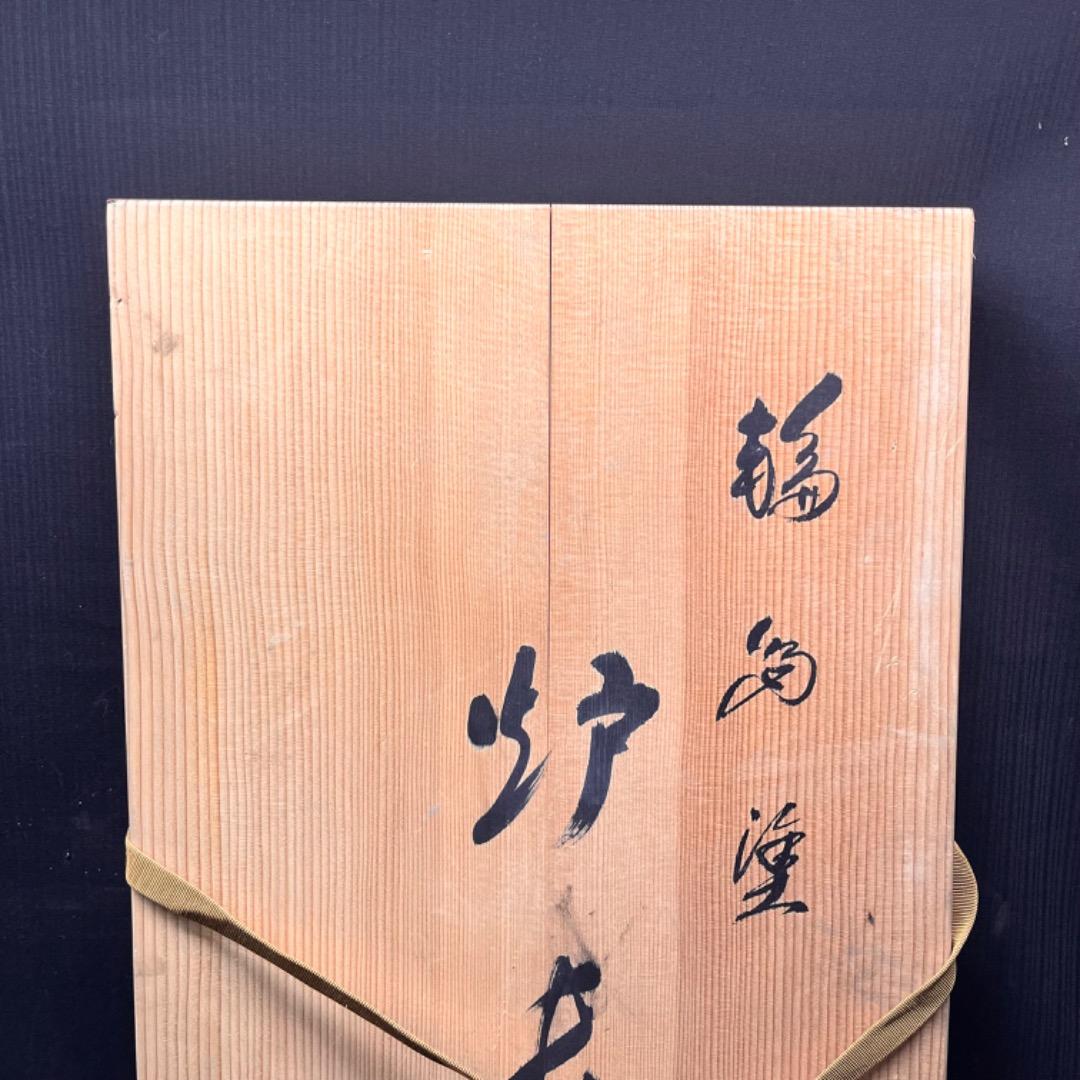 輪島塗
炉